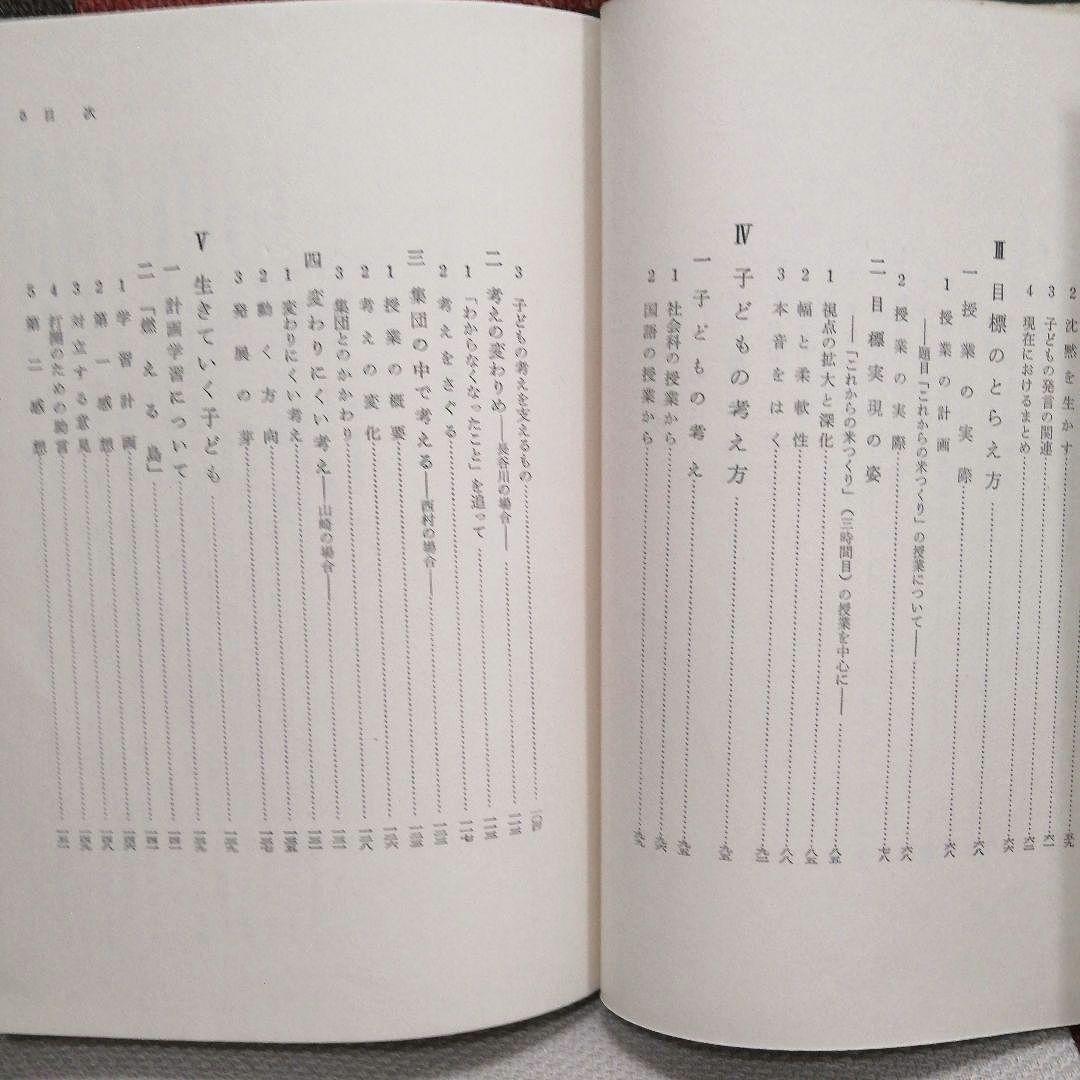 2 沈黙を生かす……五九
3 子どもの発言の関連……六一
4 現在におけるまとめ……六二
Ⅲ 目標のとらえ方……六六
一 授業の実際……六八
1 授業の計画……六八
――題目「これからの米つくり」の授業について――
2 授業の実際……六八
二 目標実現の姿……七八
――「これからの米つくり」（三時間目）の授業を中心に――
1 視点の拡大と深化……八五
2 幅と柔軟性……八五
3 本音をはく……八八
Ⅳ 子どもの考え方……九五
一 子どもの考え……九五
1 社会科の授業から……九六
2 国語の授業から
3 子どもの考えを支えるもの……一〇四
二 考えの変わりめ――長谷川の場合――……一一三
1 「わからなくなったこと」を追って……一一三
2 考えをさぐる……一一七
三 集団の中で考える――西村の場合――
1 授業の概要……一二六
2 考えの変化……一二八
3 集団とのかかわり
四 変わりにくい考え――山崎の場合――
1 変わりにくい考え……一三五
2 動く方向……一三七
3 発展の芽
Ⅴ 生きていく子ども
一 計画学習について……一四一
二 「燃える島」……一四二
1 学習計画……一四六
2 第一感想……一四八
3 対立する意見……一四九
4 打開のための助言
5 第二感想
8 目次